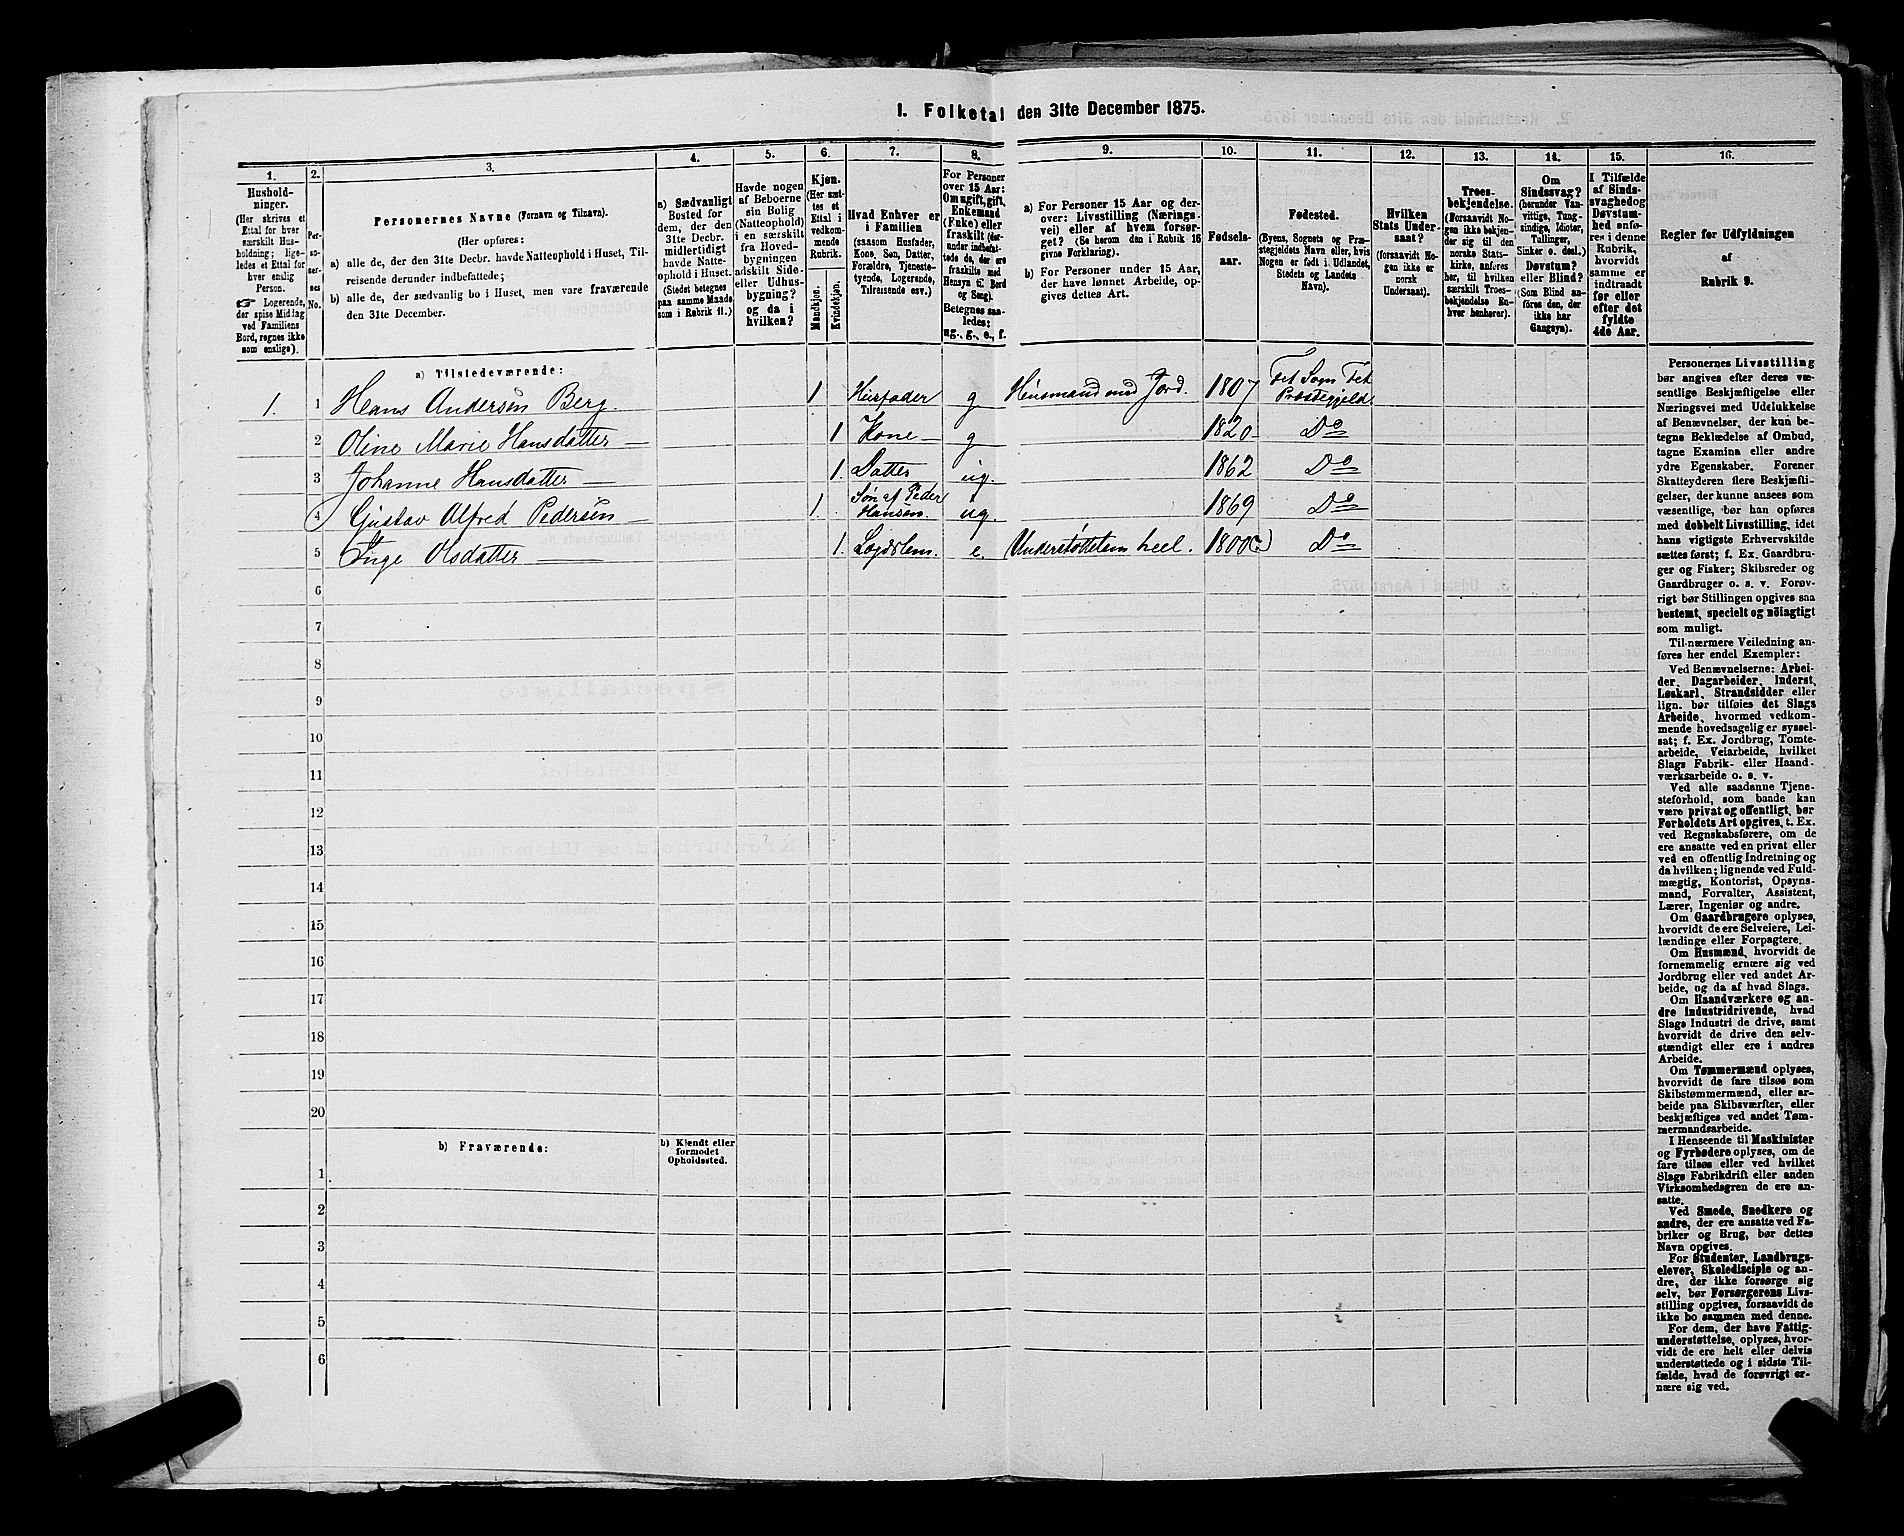 1. Folketal den 31te December 1875.
1. 2. 3. 4. 5. 6. 7. 8. 9. 10. 11. 12. 13. 14. 15. 16.
Hushold-
ninger.
(Her skrives et
Ettal for hver
særskilt Hus-
holdning; lige-
ledes et Ettal for
hver enslig
Person.
☞ Logerende,
der spise Middag
ved Familiens
Bord, regnes ikke
som enslige).
Per-
so-
ner-
nes
No.
Personernes Navne (Fornavn og Tilnavn).
(Her opføres:
a) alle de, der den 31te Decbr. havde Natteophold i Huset, Til-
reisende derunder indbefattede;
b) alle de, der sædvanlig bo i Huset, men vare fraværende
den 31te December.
a) Sædvanligt
Bosted for
dem, der den
31te Decbr.
midlertidigt
havde Natte-
ophold i Huset.
(Stedet betegnes
paa samme Maade
som i Rubrik 11.)
Havde nogen
af Beboerne
sin Bolig
(Natteophold)
i en særskilt
fra Hoved-
bygningen
adskilt Side-
eller Udhus-
bygning?
og da i
hvilken?
Kjøn.
(Her sæt-
tes et
Ettal i
vedkom-
mende
Rubrik.
Mandkjøn.
Kvindekjøn.
Hvad Enhver er
i Familien
(saasom Husfader,
Kone, Søn, Datter,
Forældre, Tjeneste-
tyende, Logerende,
Tilreisende osv.)
For Personer
over 15 Aar:
Om ugift, gift,
Enkemand
(Enke) eller
fraskilt (der-
under indbefat-
tede de, der ere
fraskilte med
Hensyn til Bord
og Seng).
Betegnes saa-
ledes:
ug., g., e., f.
a) For Personer 15 Aar og der-
over: Livsstilling (Nærings-
vei) eller af hvem forsør-
get? (Se herom den i Rubrik 16
givne Forklaring).
b) For Personer under 15 Aar,
der have lønnet Arbeide, op-
gives dettes Art.
Fødsels-
aar.
Fødested.
(Byens, Sognets og Præ-
stegjeldets Navn eller, hvis
Nogen er født i Udlandet,
Stedets og Landets
Navn).
Hvilken
Stats Under-
saat?
(forsaavidt No-
gen ikke er
norsk
Undersaat).
Troes-
bekjendelse.
(Forsaavidt No-
gen ikke bekjen-
der sig til den
norske Stats-
kirke, anføres
her, til hvilken
særskilt Troes-
bekjendelse En-
hver henhører).
Om
Sindssvag?
(herunder Van-
vittige, Tung-
sindige, Idioter,
Tullinger,
Sinker o. desl.)
Døvstum?
eller Blind?
(Som Blind an-
føres den, der
ikke har
Gangsyn).
I Tilfælde
af Sinds-
svaghed og
Døvstum-
hed anfø-
res i denne
Rubrik,
hvorvidt
samme er
indtraadt
før eller
efter det
fyldte
4de Aar.
Regler for Udfyldningen
af
Rubrik 9.
a) Tilstedeværende:
1. 1 Hans Andersen Berg. 1 Husfader g Husmand med Jord. 1807 Fet Sogn Fet Præstegjeld.
2 Oline Marie Hansdatter 1 Kone g 1820 Do
3 Johanne Hansdatter 1. Datter ug. 1862 Do
4 Gustav Alfred Pedersen 1 Søn af Peder Hansen. ug. 1869 Do
5 Inge Olsdatter 1. Logdslem. e. Understøttelsen heel. 1800(?) Do
6
7
8
9
10
11
12
13
14
15
16
17
18
19
20
b) Fraværende:
b) Kjendt eller
formodet
Opholdssted.
1
2
3
4
5
6
Personernes Livsstilling
bør angives efter deres væ-
sentlige Beskjæftigelse eller
Næringsvei med Udelukkelse
af Benævnelser, der kun be-
tegne Beklædelse af Ombud,
tagne Examina eller andre
ydre Egenskaber. Forener
Skatteyderen flere Beskjæfti-
gelser, der kunne ansees som
væsentlige, bør han opføres
med dobbelt Livsstilling, idet
hans vigtigste Erhvervskilde
sættes først; f. Ex. Gaardbru-
ger og Fisker; Skibsreder og
Gaardbruger o. s. v. Forøv-
rigt bør Stillingen opgives saa
bestemt, specielt og nöiagtigt
som muligt.
Til nærmere Veiledning an-
føres her endel Exempler:
Ved Benævnelserne: Arbei-
der, Dagarbeider, Inderst,
Løskarl, Strandsidder eller
lign. bør tilføies det Slags
Arbeide, hvormed vedkom-
mende hovedsagelig er syssel-
sat; f. Ex. Jordbrug, Tomte-
arbeide, Veiarbeide, hvilket
Slags Fabrik- eller Haand-
værksarbeide o. s. v.
Ved alle saadanne Tjene-
steforhold, som baade kan
være privat og offentligt, bør
Forholdets Art opgives, t. Ex.
ved Regnskabsførere, om de
ere ansatte ved en privat eller
ved en offentlig Indretning og
da hvilken; lignende ved Fuld-
mægtig, Kontorist, Opsyns-
mand, Forvalter, Assistent,
Lærer, Ingeniør og andre.
Om Gaardbrugere oplyses,
hvorvidt de ere Selveiere, Lei-
lændinge eller Forpagtere.
Om Husmænd, hvorvidt de
fornemmelig ernære sig ved
Jordbrug eller ved andet Ar-
beide, og da af hvad Slags.
Om Haandværkere og an-
dre Industridrivende, hvad
Slags Industri de drive, samt
hvorvidt de drive den selv-
stændigt eller ere i andres
Arbeide.
Om Tømmermænd oplyses,
hvorvidt de fare tilsøs som
Skibstømmermænd, eller ar-
beide paa Skibsværfter, eller
beskjæftiges ved andet Tøm-
mermandsarbeide.
I Henseende til Maskinister
og Fyrbødere oplyses, om de
fare tilsøs eller ved hvilket
Slags Fabrikdrift eller anden
Virksomhedsgren de ere an-
satte.
Ved Smede, Snedkere og
andre, der ere ansatte ved Fa-
briker og Brug, bør dettes
Navn opgives.
For Studenter, Landbrugs-
elever, Skoledisciple og an-
dre, der ikke forsørge sig
selv, bør Forsørgerens Livs-
stilling opgives, forsaavidt de
ikke bo sammen med denne.
For dem, der have Fattig-
understøttelse, oplyses, hvor-
vidt de ere helt eller delvis
understøttede og i sidste Til-
fælde, hvad de forøvrigt er-
nære sig ved.